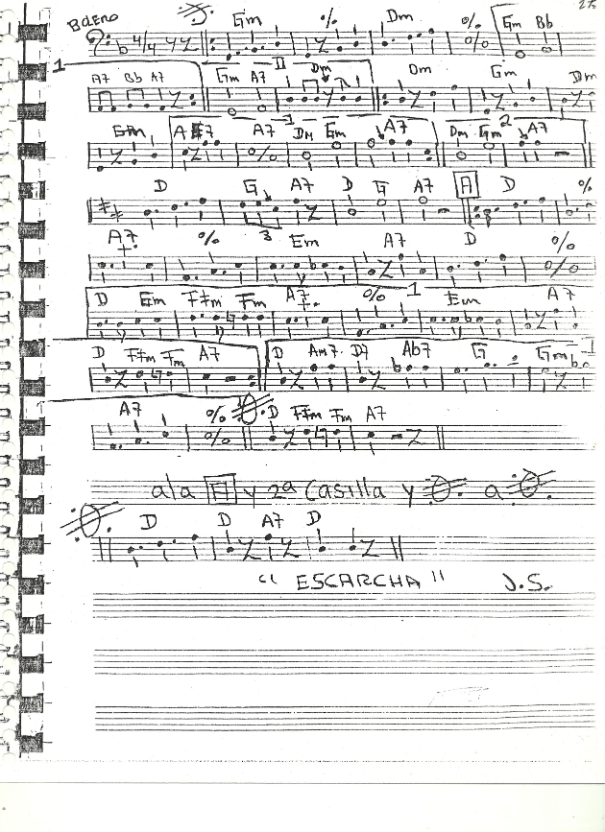 BOLERO Gm % Dm % Gm Bb
1 A7 Bb A7 Gm A7 II Dm Dm Gm Dm
Gm A7 A7 1 Dm Gm A7 Dm Gm 2 A7
D G A7 D G A7 A D %
A7 % 3 Em A7 D %
D Em F#m Fm A7 % 1 Em A7
D F#m Fm A7 D Am7 D7 Ab7 G Gm
A7 % D F#m Fm A7
ala A y 2ª Casilla y a
D D A7 D
" ESCARCHA " J.S.